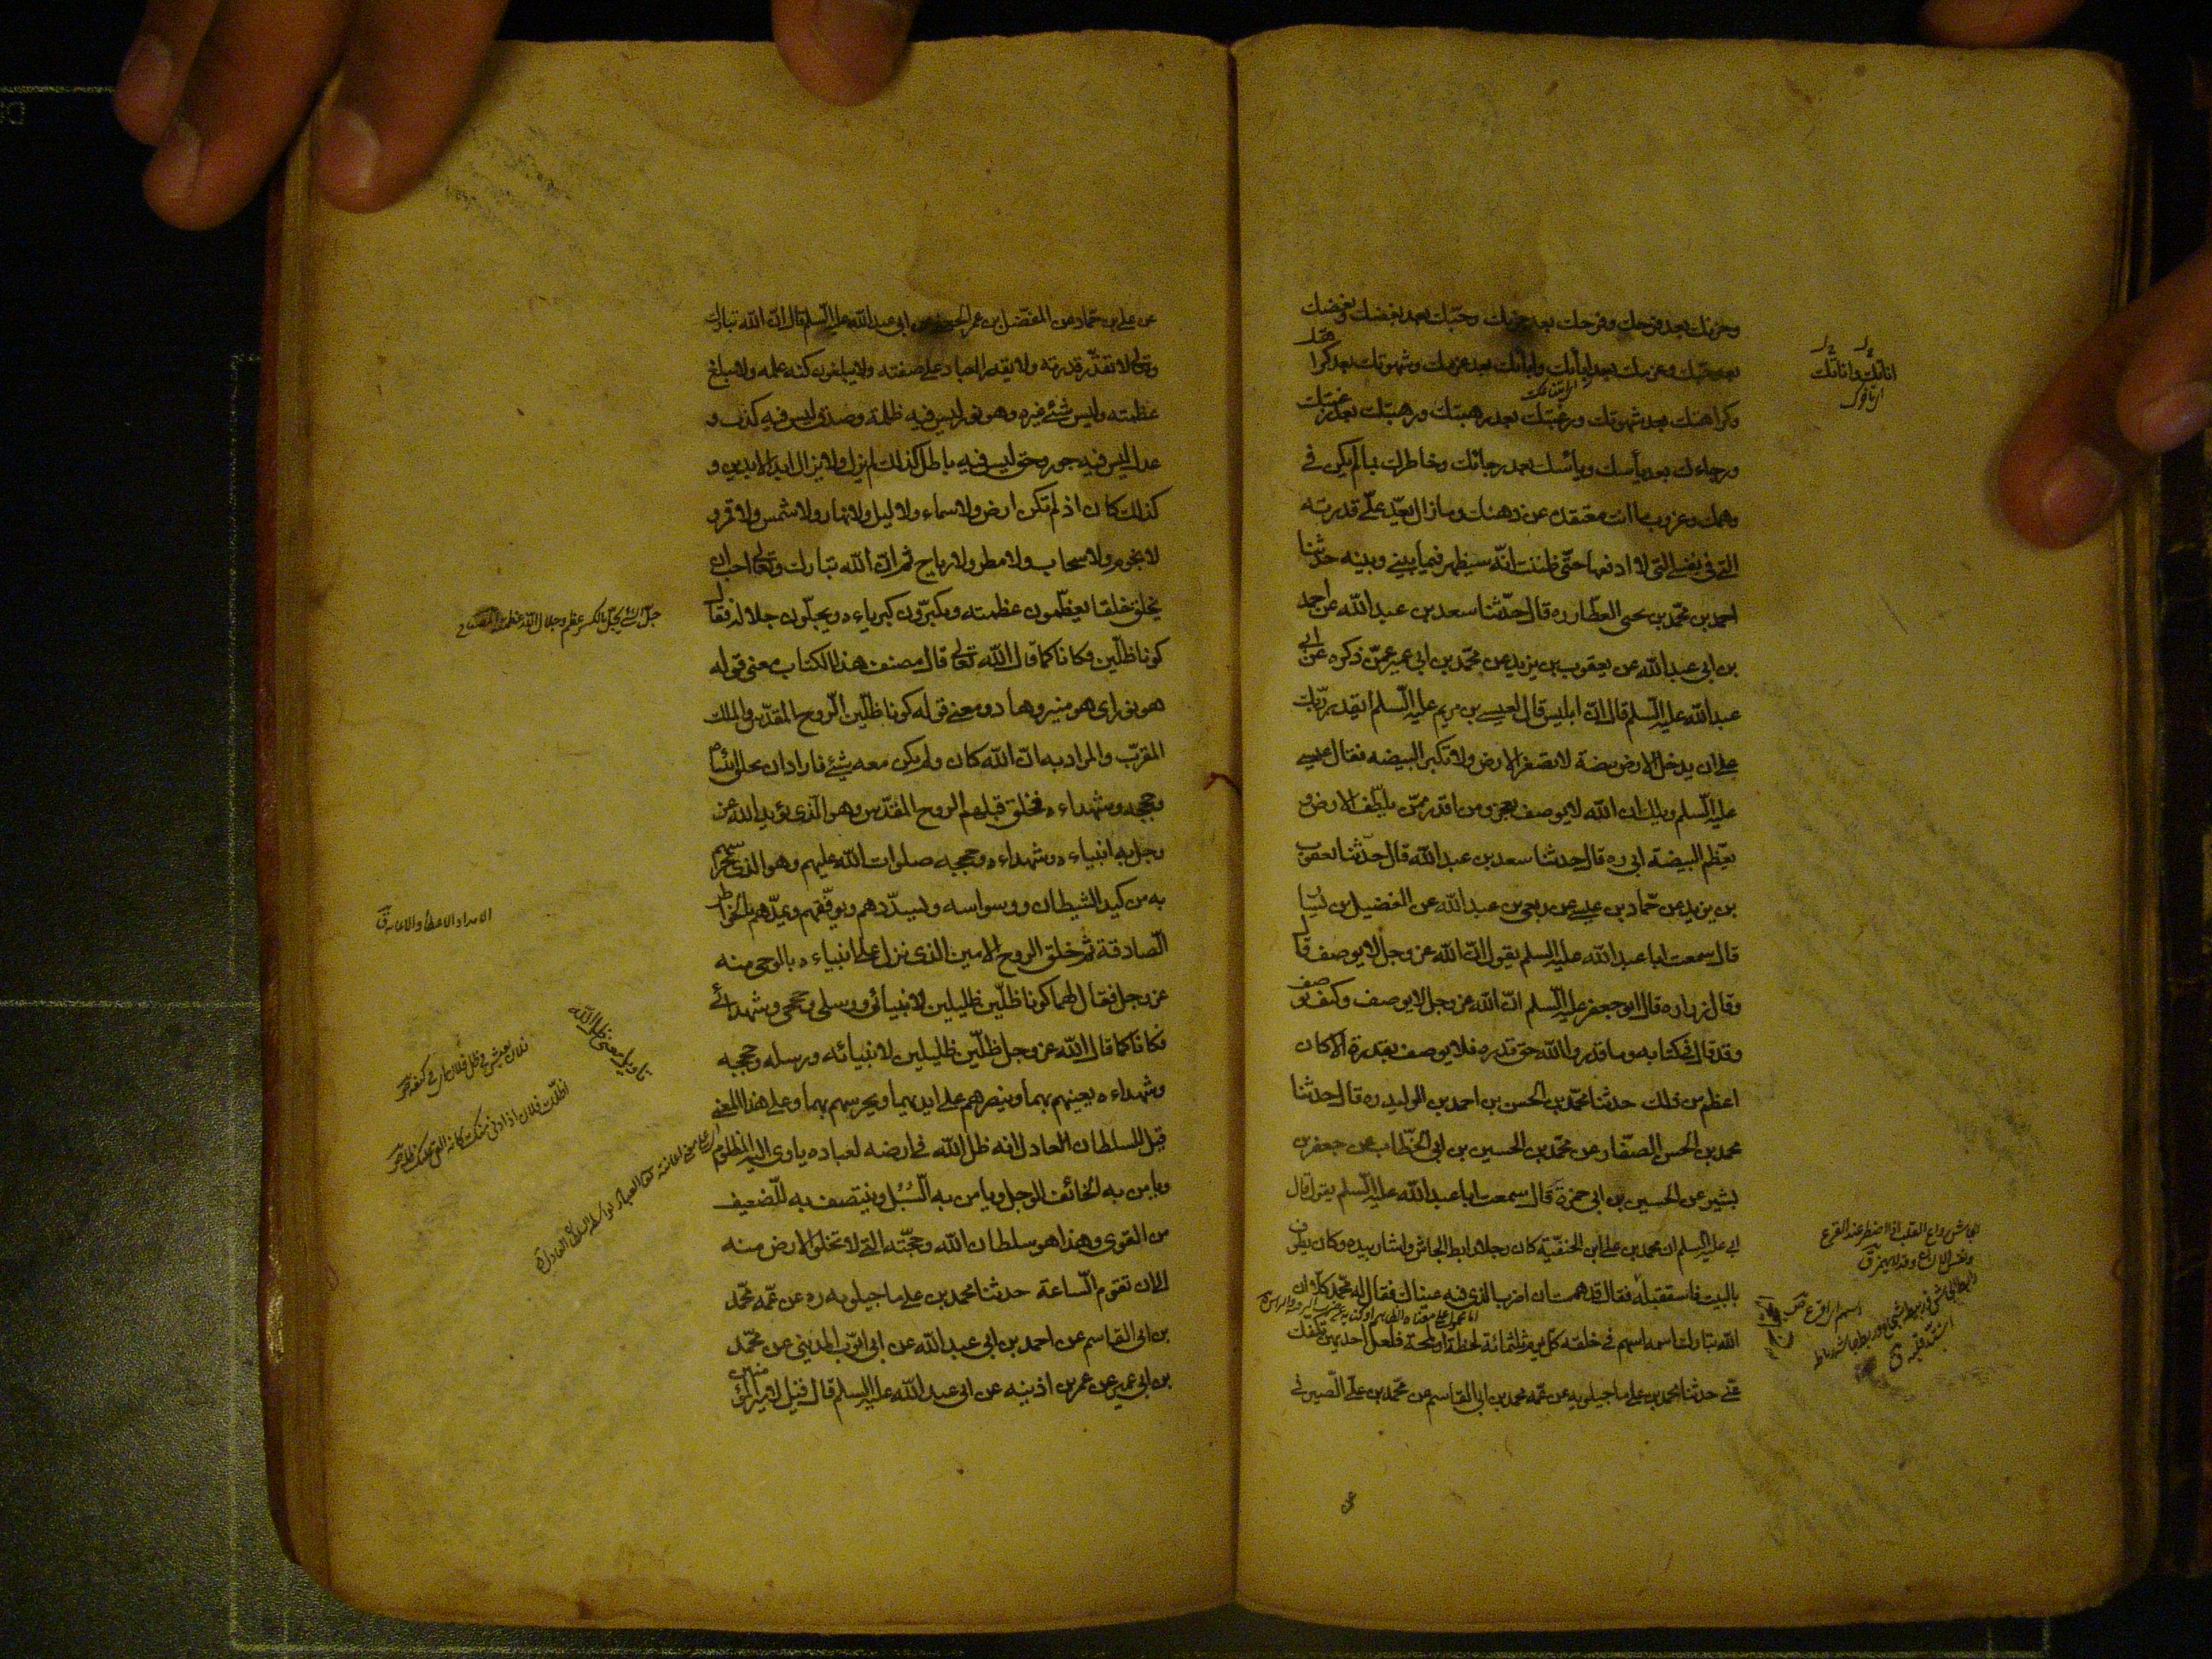 وحزنك بعد فرحك وفرحك بعد حزنك وحبّك بعد بغضك وبغضك
بعد حبّك وعزمك بعد ابائك واباءك بعد عزمك وشهوتك بعد كراهتك
وكراهتك بعد شهوتك ورغبتك بعد رهبتك ورهبتك بعد رغبتك
ورجاءك بعد يأسك ويأسك بعد رجائك وخاطرك بما لم يكن في
وهمك وعزوب ما انت معتقده عن ذهنك وما زال يعدّ علىّ قدرته
التي في نفسي التي لا ادفعها حتّى ظننت انّه سيظهر فيما بيني وبينه حدثنا
احمد بن محمّد بن يحيى العطّار ره قال حدّثنا سعد بن عبد الله عن احمد
بن ابي عبد الله عن يعقوب بن يزيد عن محمّد بن ابي عمير عمّن ذكره عن ابي
عبد الله عليه السّلم قال انّ ابليس قال لعيسى بن مريم عليه السّلم ايقدر ربّك
على ان يدخل الارض بيضة لا تصغر الارض ولا تكبر البيضه فقال عيسى
عليه السّلم ويلك ان الله لا يوصف بعجز ومن اقدر ممّن يلطّف الارض و
يعظّم البيضة ابي ره قال حدثنا سعد بن عبد الله قال حدّثنا يعقوب
بن يزيد عن حمّاد بن عيسى عن ربعي بن عبد الله عن الفضيل بن يسار
قال سمعت ابا عبد الله عليه السلم يقول انّ الله عز وجل لا يوصف قال
وقال زراره قال ابو جعفر عليه السّلم انّ الله عز وجل لا يوصف وكيف يوصف
وقد قال في كتابه وما قدروا الله حق قدره فلا يوصف بقدرة الا كان
اعظم من ذلك حدثنا محمّد بن الحسن بن احمد بن الوليد ره قال حدثنا
محمد بن الحسن الصفّار عن محمّد بن الحسين بن ابي الخطّاب عن جعفر بن
بشير عن الحسين بن ابي حمزة قال سمعت ابا عبد الله عليه السّلم يقول قال
ابي عليه السلم ان محمد بن علي ابن الحنفيّة كان رجلا رابط الجاش واشار بيده وكان يطوف
بالبيت فاستقبله فقال قد هممت ان اضرب الذي فيه عيناك فقال له محمّد كلّا ان
الله تبارك اسمه اسهم في خلقه كل يوم ثلثمائة لحظة او لمحة فلعل احديهن تكفك
عني حدثنا محمد بن علي ماجيلويه عن عمّه محمد بن ابي القاسم عن محمّد بن علي الصيرفي
عن
عن علي بن حمّاد عن المفضّل بن عمر الجعفي عن ابي عبد الله عليه السّلم قال انّ الله تبارك
وتعالى لا تقدّر قدرته ولا يقدر العباد على صفته ولا يبلغون كنه علمه ولا مبلغ
عظمته وليس شئ غيره وهو نور ليس فيه ظلمة وصدق ليس فيه كذب و
عدل ليس فيه جور وحق ليس فيه باطل كذلك لم يزل ولا يزال ابد الابدين و
كذلك كان اذ لم تكن ارض ولا سماء ولا ليل ولا نهار ولا شمس ولا قمر و
لا نجوم ولا سحاب ولا مطر ولا رياح ثم انّ الله تبارك وتعالى احب ان
يخلق خلقا يعظّمون عظمته ويكبّرون كبرياءه ويجلّون جلاله فقال
كونا ظلّين فكانا كما قال الله تعالى قال مصنف هذا الكتاب معنى قوله
هو نور اى هو منير وهاد ومعنى قوله كونا ظلّين الرّوح المقدّس والملك
المقرّب والمراد به انّ الله كان ولم يكن معه شئ فاراد ان يخلق انبياءه
وحججه وشهداءه فخلق قبلهم الروح المقدّس وهو الّذى يؤيد الله عز
وجل به انبياءه وشهداءه وحججه صلوات الله عليهم وهو الذى يحرسهم
به من كيد الشيطان ووسواسه ويسدّدهم ويوفّقهم ويمدّهم بالخواطر
الصّادقة ثم خلق الروح الامين الذى نزل على انبياءه بالوحى منه
عز وجل فقال لهما كونا ظلّين ظليلين لانبيائى ورسلى وحججى وشهدائى
فكانا كما قال الله عز وجل ظلّين ظليلين لانبيائه ورسله وحججه
وشهداءه يعينهم بهما وينصرهم على ايديهما ويحرسهم بهما وعلى هذا المعنى
قيل للسلطان العادل انه ظل الله في ارضه لعباده ياوى اليه المظلوم
ويامن به الخائف الوجل ويامن به السّبُل وينتصف به للضعيف
من القوى وهذا هو سلطان الله وحجّته التى لا تخلو الارض منه
الى ان تقوم السّاعة حدثنا محمد بن على ماجيلويه ره عن عمّه محمّد
بن ابى القاسم عن احمد بن ابى عبد الله عن ابى ايّوب المدينى عن محمّد
بن ابى عمير عن عمر بن اذينه عن ابى عبد الله عليه السلم قال قيل لامير المؤمنين
الامداد الاعطاء والاعانة ق